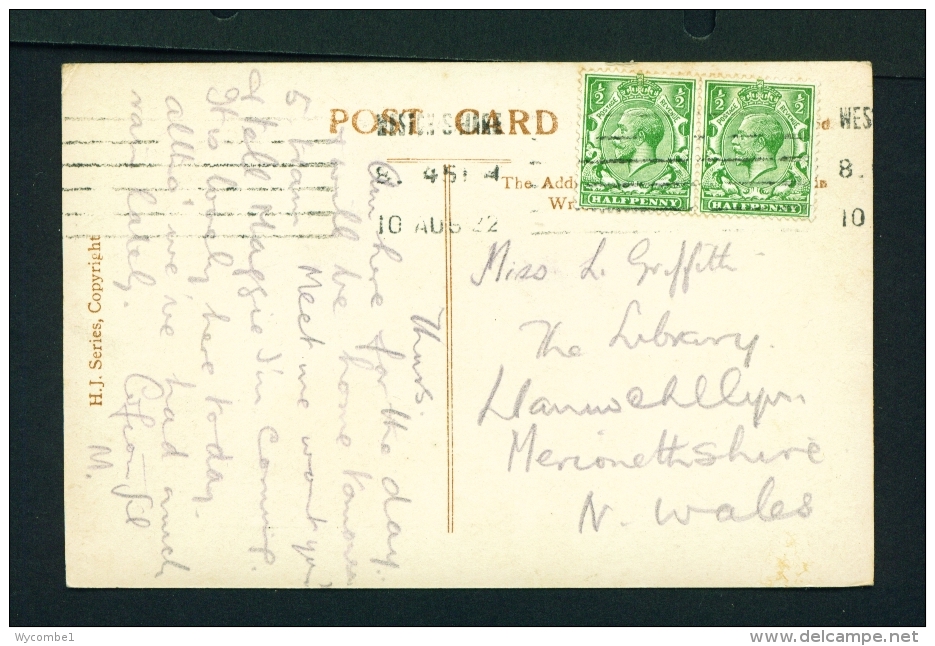 POST CARD
8. 45P
10 AUG 22
WES
8.
10
The Add
Wr
1/2 1/2
POSTAGE REVENUE
HALFPENNY
1/2 1/2
POSTAGE REVENUE
HALFPENNY
H.J. Series, Copyright
Thurs.
Am here for the day.
I will be home tomorrow
5.
Meet me wont you
& tell Maggie I'm coming.
It is lovely here today.
altho' we've had much
rain lately.
M.
Miss L. Griffith
The Library.
Llanuwchllyn
Merionethshire
N. Wales
Wycombe1
www.delcampe.net